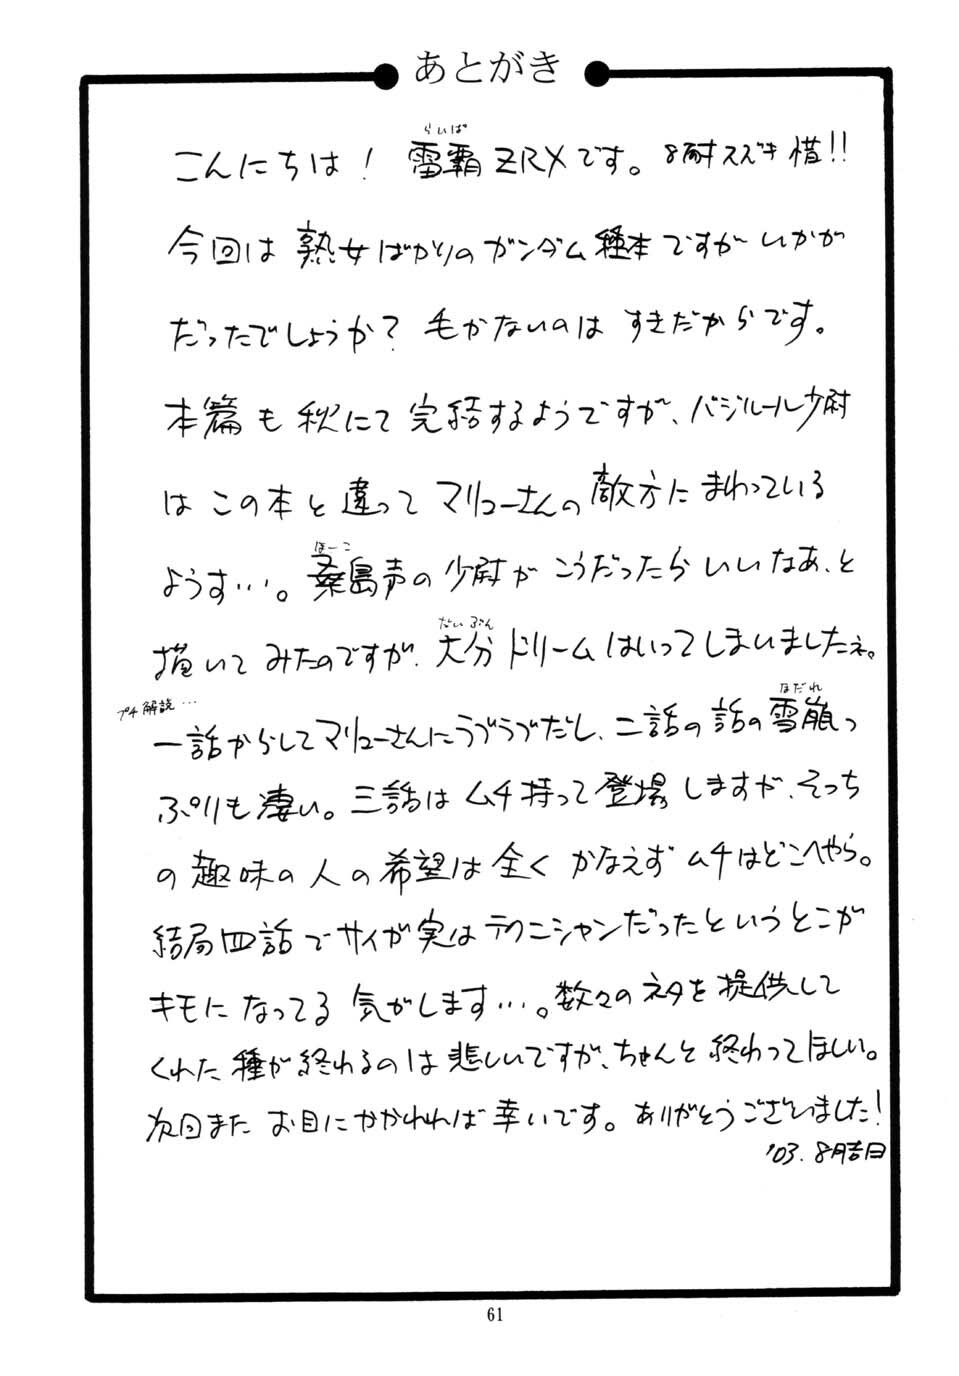 あとがき
らいぱ
こんにちは! 雷覇ZRXです。8耐スズキ惜!!
今回は熟女ばかりのガンダム種本ですがいかが
だったでしょうか? 毛がないのはすきだからです。
本篇も秋にて完結するようですが、バジルール少尉
はこの本と違ってマリューさんの敵方にまわっている
ほーこ
ようす…。桑島声の少尉がこうだったらいいなあ、と
だいぶん
描いてみたのですが、大分ドリームはいってしまいましたネ。
プチ解説…
なだれ
一話からしてマリューさんにラブラブだし、二話の話の雪崩っ
ぷりも凄い。三話はムチ持って登場しますが、そっち
の趣味の人の希望は全くかなえずムチはどこへやら。
結局四話でサイが実はテクニシャンだったというとこが
キモになってる気がします…。数々のネタを提供して
くれた種が終わるのは悲しいですが、ちゃんと終わってほしい。
次回またお目にかかれれば幸いです。ありがとうございました!
'03.8月吉日
61